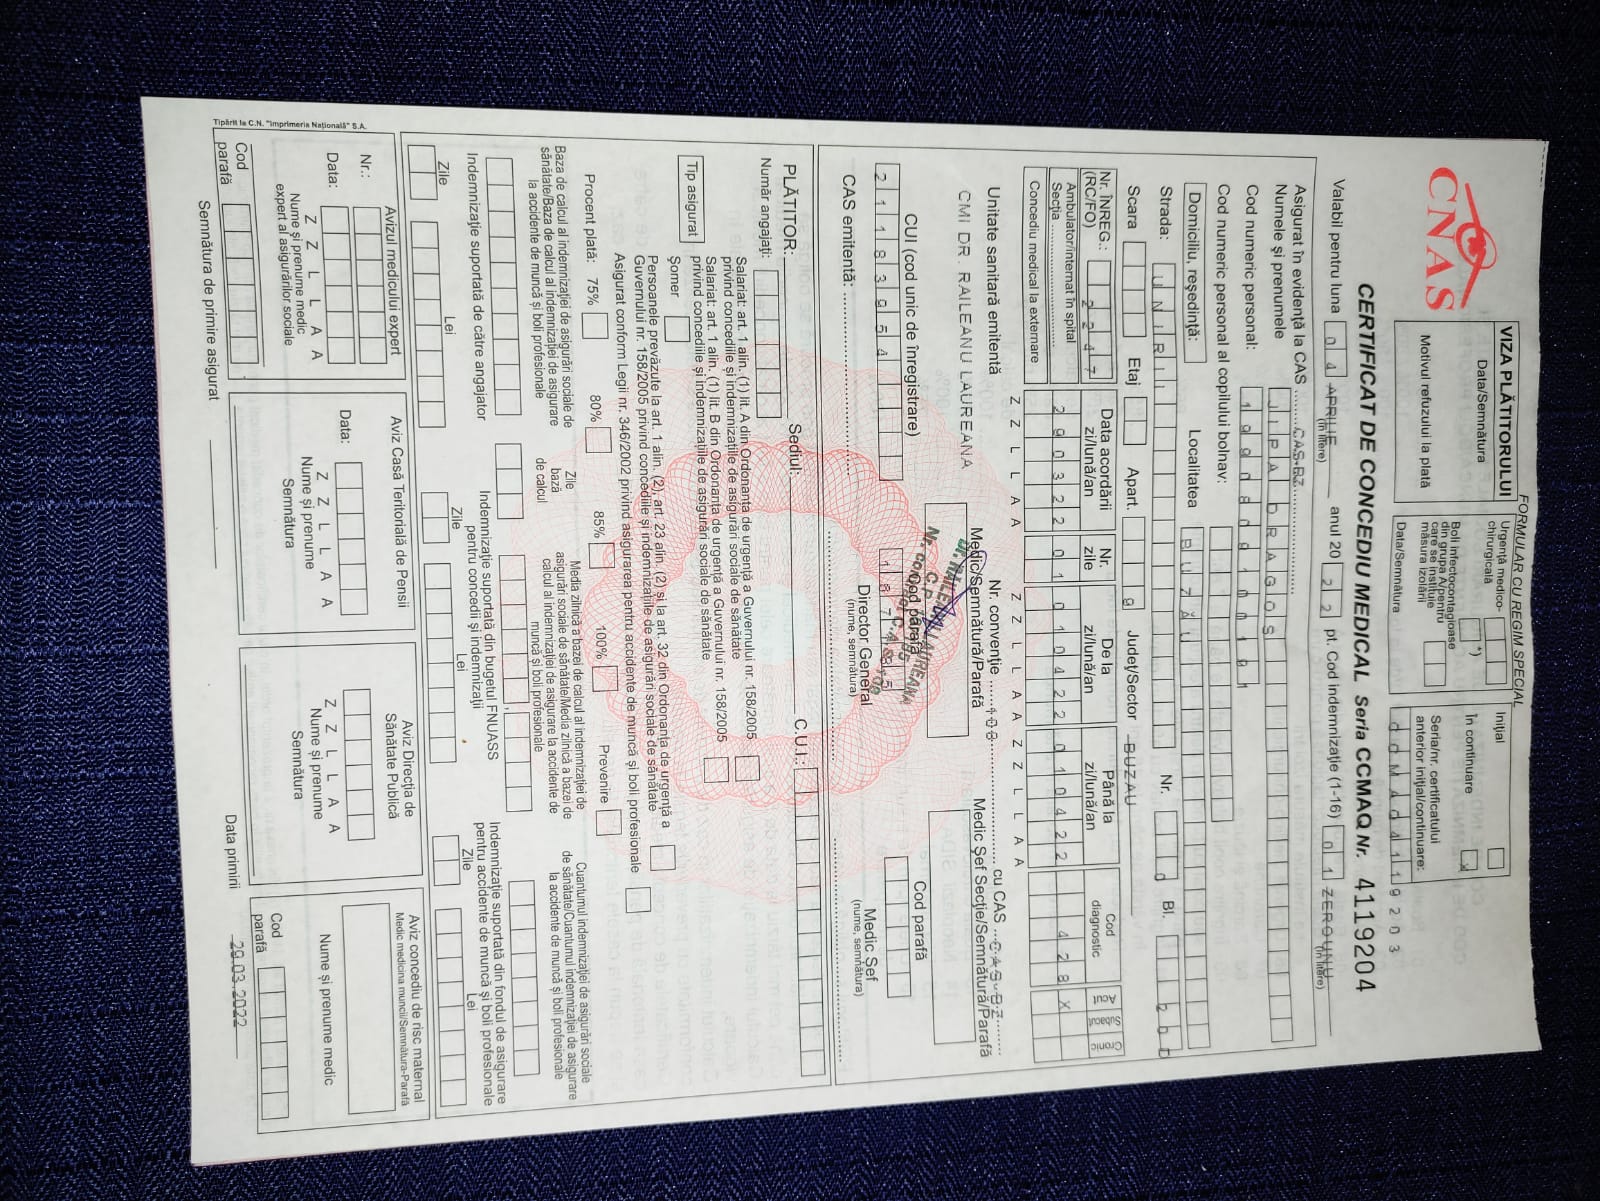 FORMULAR CU REGIM SPECIAL
CNAS
VIZA PLĂTITORULUI
Data/Semnătura
Motivul refuzului la plată
Urgență medico-chirurgicală
Boli infectocontagioase din grupa A/pentru care se instituie măsura izolării
*)
Data/Semnătura
Inițial
În continuare X
Seria/nr. certificatului anterior inițial/continuare:
CERTIFICAT DE CONCEDIU MEDICAL Seria CCMAQ Nr. 4119204
Valabil pentru luna 04 APRILIE anul 20 22 pt. Cod indemnizație (1-16) 01 ZEROUNU
(în litere) (în litere)
Asigurat în evidență la CAS CAS-BZ
Numele și prenumele JIPA DRAGOS
Cod numeric personal:
Cod numeric personal al copilului bolnav:
Domiciliu, reședință: Localitatea BUZĂU
Strada: UNIRII Nr. Bl.
Scara Etaj Apart. 9 Județ/Sector BUZAU
Nr. ÎNREG.: (RC/FO) 2247
Data acordării zi/lună/an
Nr. zile
De la zi/lună/an
Până la zi/lună/an
Cod diagnostic
Acut
Subacut
Cronic
Ambulator/internat în spital
Secția
290322 01 010422 010422 428 X
Concediu medical la externare
Z Z L L A A Z Z L L A A Z Z L L A A
Unitate sanitară emitentă
CMI DR. RAILEANU LAUREANA
Nr. convenție 403 cu CAS CAS-BZ
Medic/Semnătură/Parafă
Medic Șef Secție/Semnătură/Parafă
Dr. RAILEANU LAUREANA
CUI (cod unic de înregistrare)
21183954
Cod parafă
Cod parafă
CAS emitentă:
Director General
(nume, semnătura)
Medic Șef
(nume, semnătura)
PLĂTITOR: Sediul: C.U.I.:
Număr angajați:
Tip asigurat
Salariat: art. 1 alin. (1) lit. A din Ordonanța de urgență a Guvernului nr. 158/2005 privind concediile și indemnizațiile de asigurări sociale de sănătate
Salariat: art. 1 alin. (1) lit. B din Ordonanța de urgență a Guvernului nr. 158/2005 privind concediile și indemnizațiile de asigurări sociale de sănătate
Șomer
Persoanele prevăzute la art. 1 alin. (2), art. 23 alin. (2) și la art. 32 din Ordonanța de urgență a Guvernului nr. 158/2005 privind concediile și indemnizațiile de asigurări sociale de sănătate
Asigurat conform Legii nr. 346/2002 privind asigurarea pentru accidente de muncă și boli profesionale
Procent plată: 75% 80% 85% 100% Prevenire
Baza de calcul al indemnizației de asigurări sociale de sănătate/Baza de calcul al indemnizației de asigurare la accidente de muncă și boli profesionale
Zile bază de calcul
Media zilnică a bazei de calcul al indemnizației de asigurări sociale de sănătate/Media zilnică a bazei de calcul al indemnizației de asigurare la accidente de muncă și boli profesionale
Cuantumul indemnizației de asigurări sociale de sănătate/Cuantumul indemnizației de asigurare la accidente de muncă și boli profesionale
Indemnizație suportată de către angajator
Zile Lei
Indemnizație suportată din bugetul FNUASS pentru concedii și indemnizații
Zile Lei
Indemnizație suportată din fondul de asigurare pentru accidente de muncă și boli profesionale
Zile Lei
Avizul medicului expert
Nr.:
Data:
Z Z L L A A
Nume și prenume medic expert al asigurărilor sociale
Cod parafă
Aviz Casă Teritorială de Pensii
Data:
Z Z L L A A
Nume și prenume
Semnătura
Aviz Direcția de Sănătate Publică
Z Z L L A A
Nume și prenume
Semnătura
Aviz concediu de risc maternal
Medic medicina muncii/Semnătura-Parafă
Nume și prenume medic
Cod parafă
Semnătura de primire asigurat
Data primirii 29.03.2022
Tipărit la C.N. "Imprimeria Națională" S.A.